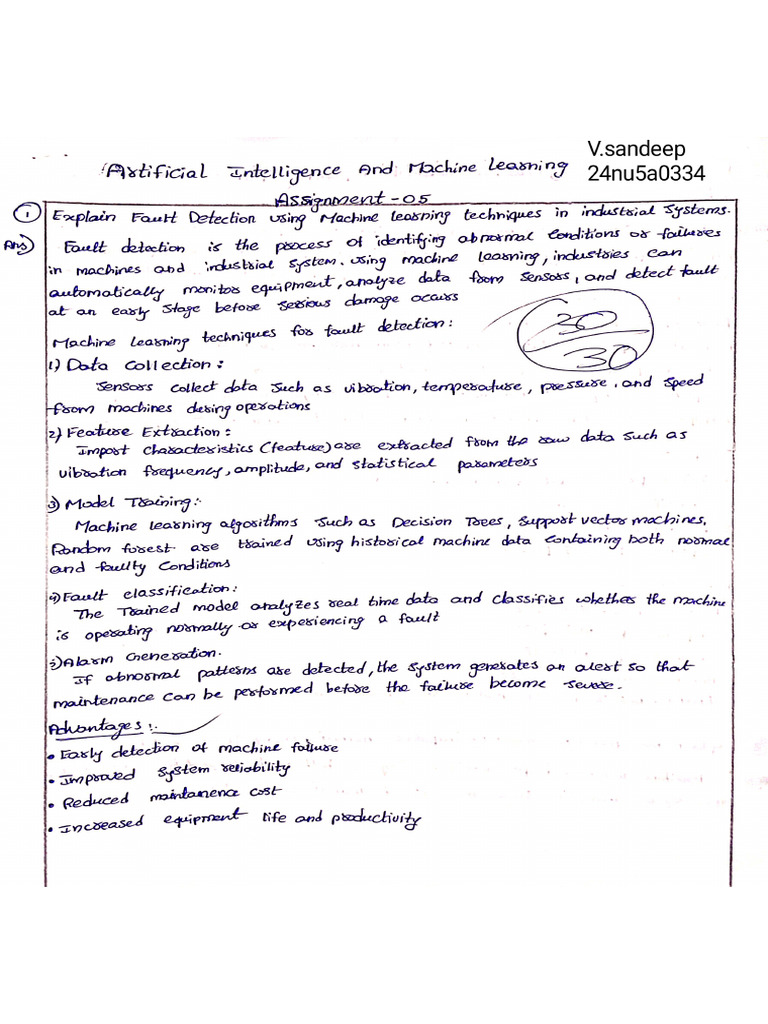 V.sandeep
24nu5a0334
Artificial Intelligence And Machine Learning
Assignment -05
① Explain Fault Detection using Machine learning techniques in industrial systems.
Ans) Fault detection is the process of identifing abnormal conditions or failures
in machines and industrial system. using machine learning, industries can
automatically monitor equipment, analyze data from sensors, and detect fault
at an early stage before serious damage occurs
Machine Learning techniques for fault detection:
30/30
1) Data Collection:
Sensors collect data such as vibration, temperature, pressure, and speed
from machines during operations
2) Feature Extraction:
Import characteristics (feature) are extracted from the raw data such as
vibration frequency, amplitude, and statistical parameters
3) Model Training:-
Machine learning algorithms such as Decision Trees, support vector machines,
Random forest are trained using historical machine data containing both normal
and faulty conditions
4) Fault classification:
The Trained model analyzes real time data and classifies whether the machine
is operating normally or experiencing a fault
5) Alarm Generation.
If abnormal patterns are detected, the system generates an alert so that
maintenance can be performed before the failure become severe.
Advantages:-
• Early detection of machine failure
• Improved system reliability
• Reduced maintanence cost
• Increased equipment life and productivity